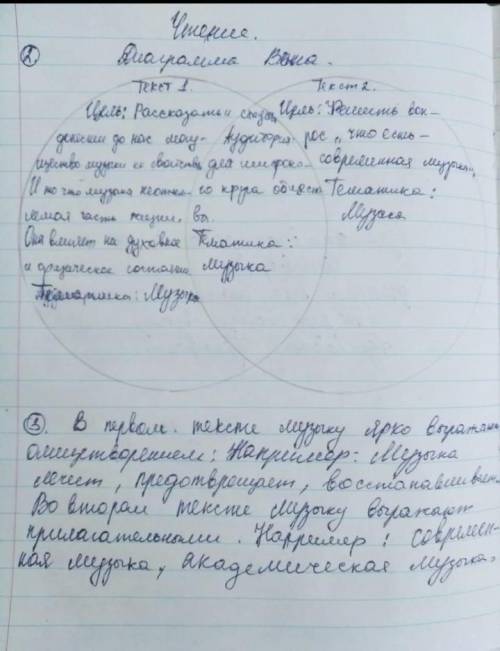 Чтение.
2. Диаграмма Вена.
Текст 1. Текст 2.
Цель: Рассказать и Цель: Решить воп-
до нас могу- Аудитория: рос "что есть
щество музыки ее свойства для широко- современная музыка",
И то что музыка неотъем- го круга общест Тематика:
лемая часть жизни. вы. Музыка
Она влияет на духовное Тематика:
и физическое состояние музыка
Тематика: Музыка
3. В первом тексте музыку ярко выражают
олицетворением: Например: Музыка
лечит, предотвращает, восстанавливает.
Во втором тексте музыку выражают
прилагательными. Наример: современ-
ная музыка, академическая музыка.